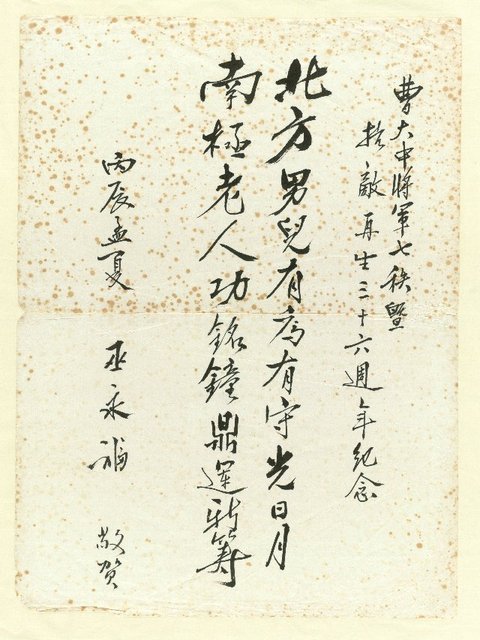 曹大中將軍七秩暨
抗敵再生三十六週年紀念
北方男兒有為有守光日月
南極老人功銘鐘鼎運新籌
丙辰孟夏 巫永福 敬賀